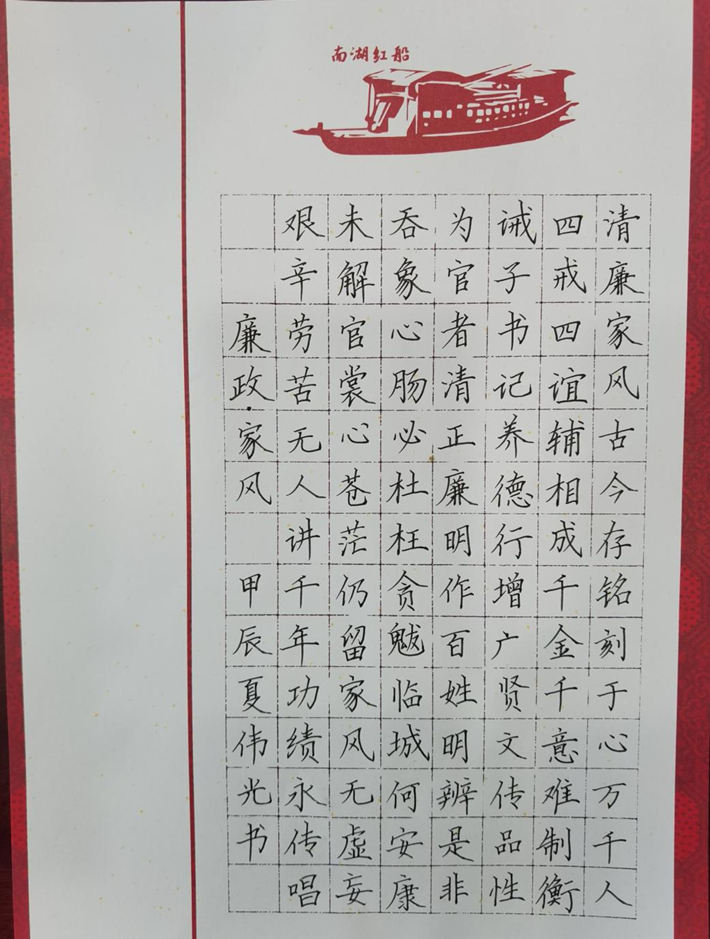 南湖红船
清廉家风古今存铭刻于心万千人
四戒四谊辅相成千金千意难制衡
诫子书记养德行增广贤文传品性
为官者清正廉明作百姓明辨是非
吞象心肠必杜枉贪魃临城何安康
未解官裳心苍茫仍留家风无虚妄
艰辛劳苦无人讲千年功绩永传唱
廉政·家风 甲辰夏伟光书